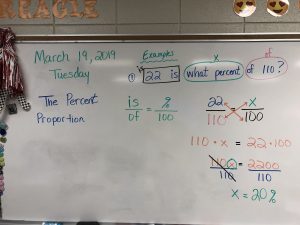 EAGLE
March 19, 2019
Tuesday
The Percent
Proportion
Examples
① 22 is what percent of 110?
is
x
of
is/of = %/100
22/110 = x/100
110 • x = 22 • 100
110x/110 = 2200/110
x = 20%